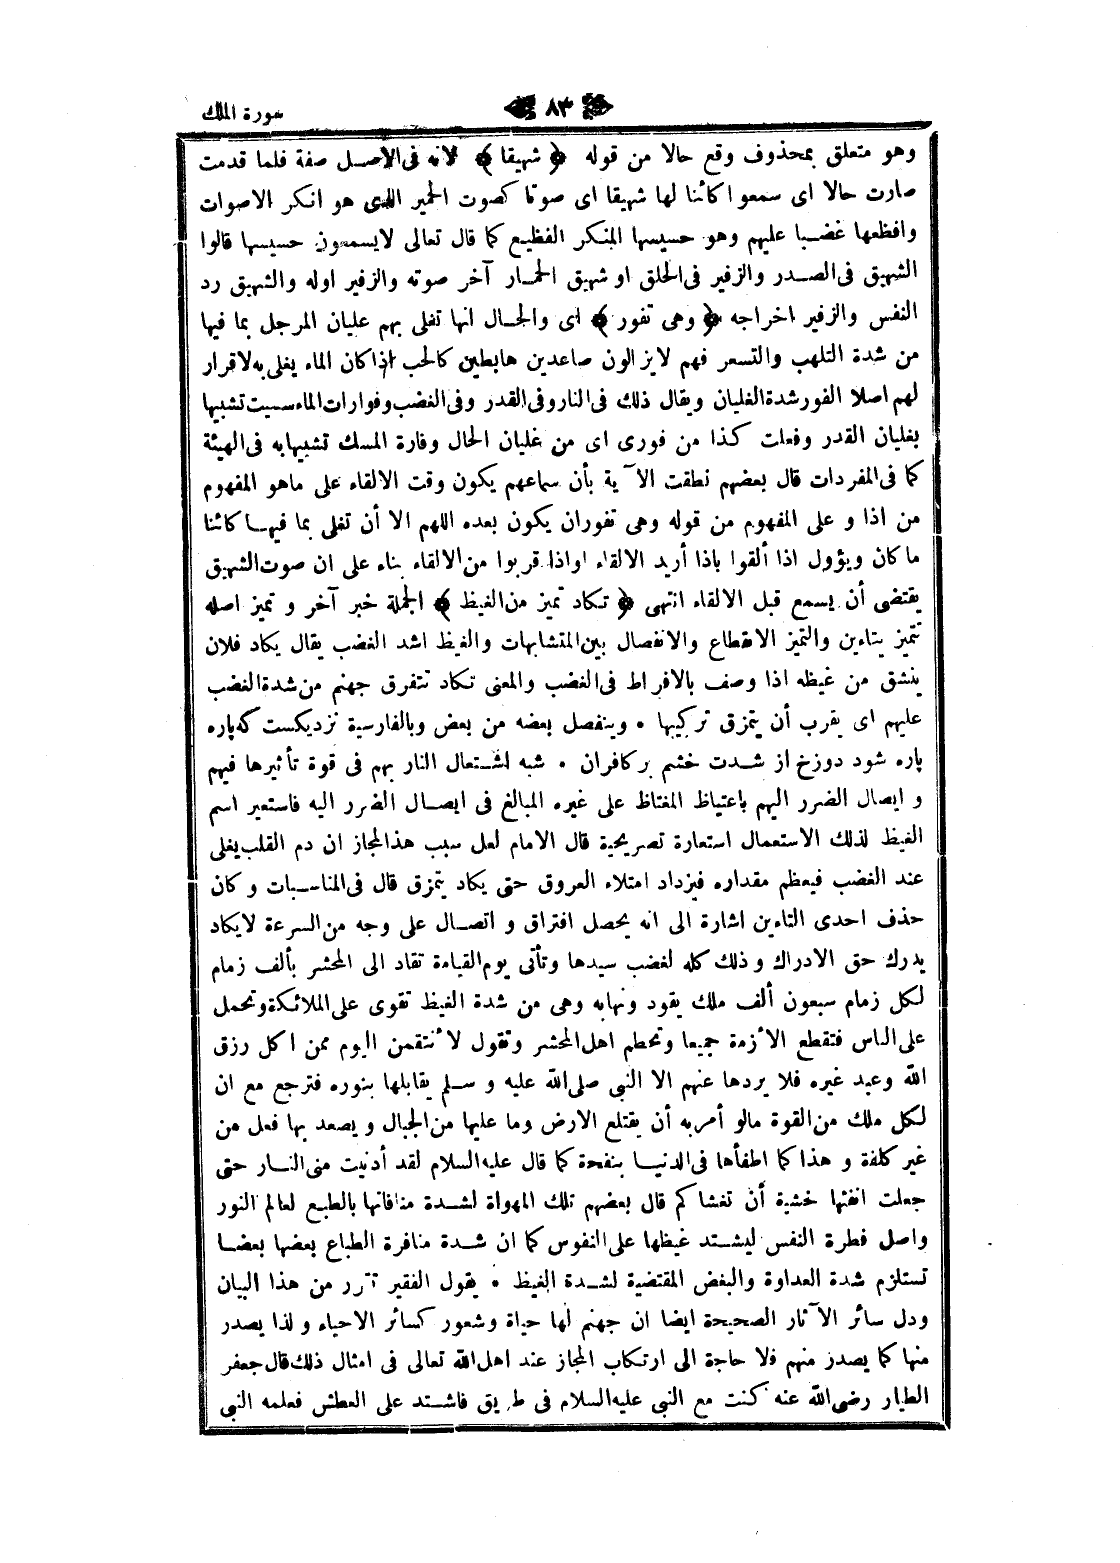 سورة الملك
٨٣
وهو متعلق بمحذوف وقع حالا من قوله ﴿ شهيقا ﴾ لانه فى الاصل صفة فلما قدمت
صارت حالا اى سمعوا كائنا لها شهيقا اى صوتا كصوت الحمير الذى هو انكر الاصوات
وافظعها غضبا عليهم وهو حسيسها المنكر الفظيع كما قال تعالى لايسمعون حسيسها قالوا
الشهيق فى الصدر والزفير فى الحلق او شهيق الحمار آخر صوته والزفير اوله والشهيق رد
النفس والزفير اخراجه ﴿ وهى تفور ﴾ اى والحال انها تغلى بهم غليان المرجل بما فيها
من شدة التلهب والتسعر فهم لايزالون صاعدين هابطين كالحب اذا كان الماء يغلى به لاقرار
لهم اصلا الفور شدة الغليان ويقال ذلك فى النار وفى القدر وفى الغضب وفوارات الماء سميت تشبيها
بغليان القدر وفعلت كذا من فورى اى من غليان الحال وفارة المسك تشبيها به فى الهيئة
كما فى المفردات قال بعضهم نطقت الآية بأن سماعهم يكون وقت الالقاء على ماهو المفهوم
من اذا و على المفهوم من قوله وهى تفوران يكون بعده اللهم الا أن تغلى بما فيها كائنا
ما كان ويؤول اذا ألقوا باذا أريد الالقاء اواذا قربوا من الالقاء بناء على ان صوت الشهيق
يقتضى أن يسمع قبل الالقاء انتهى ﴿ تكاد تميز من الغيظ ﴾ الجملة خبر آخر و تميز اصله
تتميز بتاءين والتميز الانقطاع والانفصال بين المتشابهات والغيظ اشد الغضب يقال يكاد فلان
ينشق من غيظه اذا وصف بالافراط فى الغضب والمعنى تكاد تتفرق جهنم من شدة الغضب
عليهم اى يقرب أن يتمزق تركيبها • وينفصل بعضه من بعض وبالفارسية نزديكست كه پاره
پاره شود دوزخ از شدت خشم بركافران • شبه اشتعال النار بهم فى قوة تأثيرها فيهم
و ايصال الضرر اليهم باغتياظ المغتاظ على غيره المبالغ فى ايصال الضرر اليه فاستعير اسم
الغيظ لذلك الاستعمال استعارة تصريحية قال الامام لعل سبب هذا المجاز ان دم القلب يغلى
عند الغضب فيعظم مقداره فيزداد امتلاء العروق حتى يكاد يتمزق قال فى المناسبات و كان
حذف احدى التاءين اشارة الى انه يحصل افتراق و اتصال على وجه من السرعة لايكاد
يدرك حق الادراك و ذلك كله لغضب سيدها وتأتى يوم القيامة تقاد الى المحشر بألف زمام
لكل زمام سبعون ألف ملك يقود ونهابه وهى من شدة الغيظ تقوى على الملائكة وتحمل
على الناس فتقطع الأزمة جميعا وتحطم اهل المحشر وتقول لأنتقمن اليوم ممن اكل رزق
الله وعبد غيره فلا يردها عنهم الا النبى صلى الله عليه و سلم يقابلها بنوره فترجع مع ان
لكل ملك من القوة مالو أمر به أن يقتلع الارض وما عليها من الجبال و يصعد بها فعل من
غير كلفة و هذا كما اطفأها فى الدنيا بنفحة كما قال عليه السلام لقد أدنيت منى النار حتى
جعلت انفثها خشية أن تغشاكم قال بعضهم تلك المهواة لشدة منافاتها بالطبع لعالم النور
واصل فطرة النفس ليشتد غيظها على النفوس كما ان شدة منافرة الطباع بعضها بعضا
تستلزم شدة العداوة والبغض المقتضية لشدة الغيظ • يقول الفقير تقرر من هذا البيان
ودل سائر الآثار الصحيحة ايضا ان جهنم لها حياة وشعور كسائر الاحياء و لذا يصدر
منها كما يصدر منهم فلا حاجة الى ارتكاب المجاز عند اهل الله تعالى فى امثال ذلك قال جعفر
الطيار رضى الله عنه كنت مع النبى عليه السلام فى طريق فاشتد على العطش فعلمه النبى